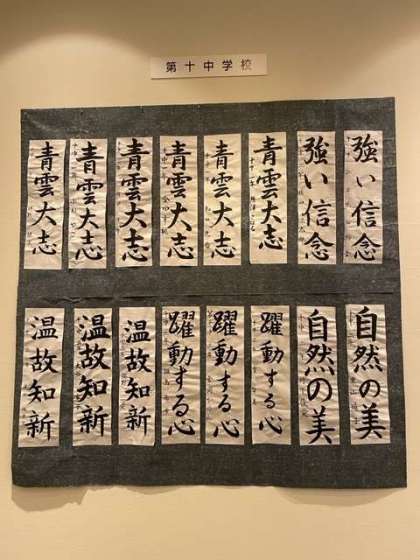 第十中学校
強い信念
強い信念
青雲大志
青雲大志
青雲大志
青雲大志
青雲大志
青雲大志
自然の美
自然の美
躍動する心
躍動する心
躍動する心
温故知新
温故知新
温故知新